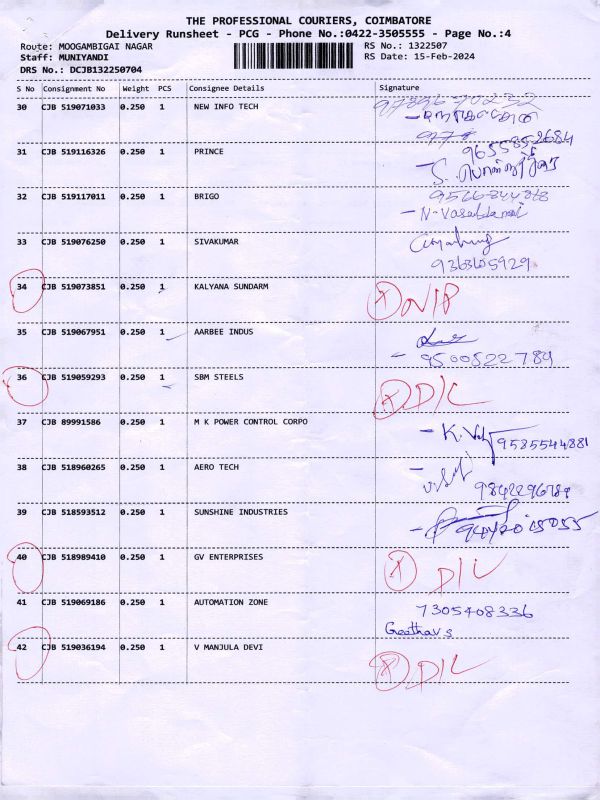 THE PROFESSIONAL COURIERS, COIMBATORE
Delivery Runsheet - PCG - Phone No.:0422-3505555 - Page No.:4
Route: MOOGAMBIGAI NAGAR
RS No.: 1322507
Staff: MUNIYANDI
RS Date: 15-Feb-2024
DRS No.: DCJB132250704
S No Consignment No Weight PCS Consignee Details Signature
30 CJB 519071033 0.250 1 NEW INFO TECH
31 CJB 519116326 0.250 1 PRINCE
9655852684
32 CJB 519117011 0.250 1 BRIGO
33 CJB 519076250 0.250 1 SIVAKUMAR
34 CJB 519073851 0.250 1 KALYANA SUNDARM
35 CJB 519067951 0.250 1 AARBEE INDUS
9500522784
36 CJB 519059293 0.250 1 SBM STEELS D/L
37 CJB 89991586 0.250 1 M K POWER CONTROL CORPO
9585544881
38 CJB 518960265 0.250 1 AERO TECH
39 CJB 518593512 0.250 1 SUNSHINE INDUSTRIES
40 CJB 518989410 0.250 1 GV ENTERPRISES D/L
41 CJB 519069186 0.250 1 AUTOMATION ZONE 7305408336
Geetha V S
42 CJB 519036194 0.250 1 V MANJULA DEVI D/L